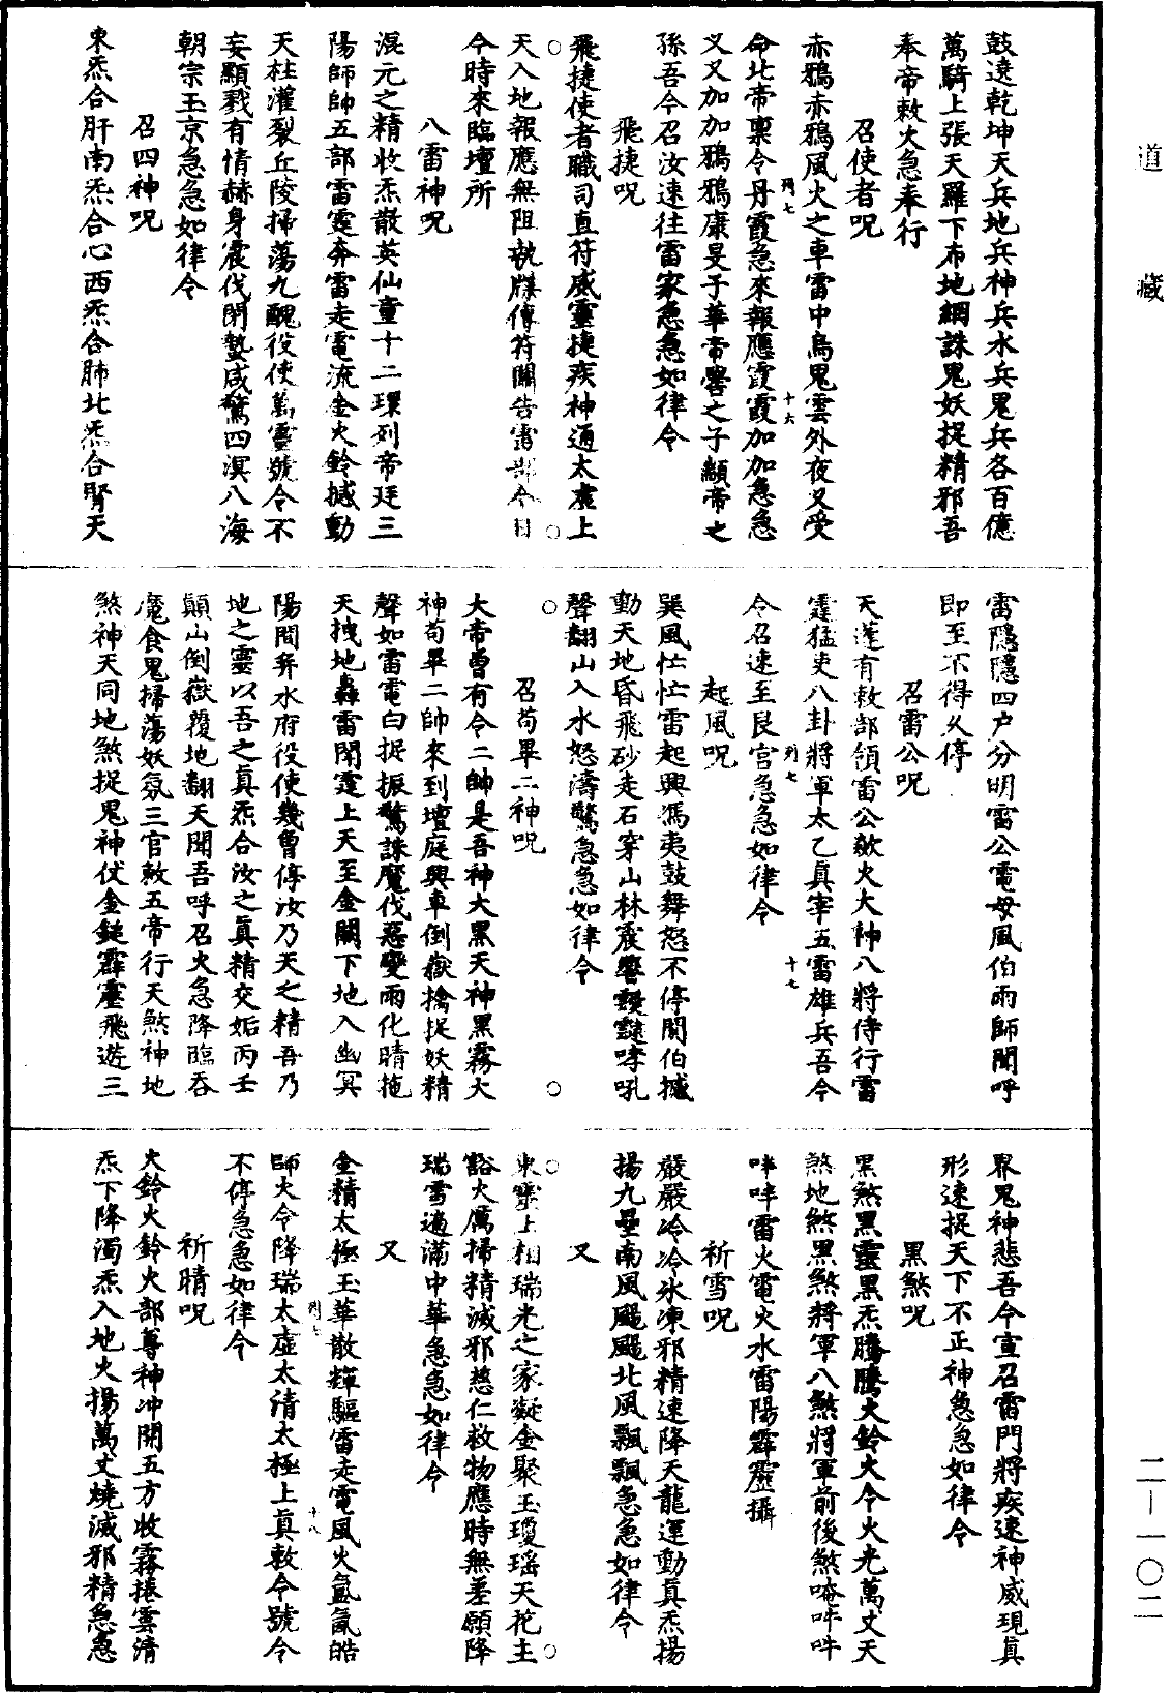 道藏
鼓遶乾坤天兵地兵神兵水兵鬼兵各百億
萬騎上張天羅下布地網誅鬼妖捉精邪吾
奉帝敕火急奉行
召使者呪
赤鴉赤鴉風火之車雷中鳥鬼雲外夜叉受
命北帝稟令丹霞急來報應霞霞加加急急
列七
十六
又又加加鴉鴉康旻子華帝嚳之子顓帝之
孫吾今召汝速往雷家急急如律令
飛捷呪
飛捷使者職司直符威靈捷疾神通太虛上
天入地報應無阻執牒傳符關告雷部今日
今時來臨壇所
八雷神呪
混元之精收炁散英仙童十二環列帝廷三
陽師帥五部雷霆奔雷走電流金火鈴撼動
天柱灌裂丘陵掃蕩九醜役使萬靈號令不
妄顯戮有情赫身震伐閉蟄咸驚四溟八海
朝宗玉京急急如律令
召四神呪
東炁合肝南炁合心西炁合肺北炁合腎天
雷隱隱四户分明雷公電母風伯雨師聞呼
即至不得久停
召雷公呪
天蓬有敕部領雷公歘火大神八將侍行雷
霆猛吏八卦將軍太乙真宰五雷雄兵吾今
列七
十七
令召速至艮宮急急如律令
起風呪
巽風忙忙雷起興馮夷鼓舞怒不停關伯撼
動天地昏飛砂走石穿山林震響靉靆哮吼
聲翻山入水怒濤驚急急如律令
召苟畢二神呪
大帝曾有令二帥是吾神大黑天神黑霧大
神苟畢二帥來到壇庭興車倒嶽擒捉妖精
聲如雷電白捉振驚誅魔伐惡變雨化晴拖
天拽地轟雷閗霆上天至金闕下地入幽冥
陽間弈水府役使幾曾停汝乃天之精吾乃
地之靈以吾之真炁合汝之真精交姤丙壬
顛山倒嶽覆地翻天聞吾呼召火急降臨吞
魔食鬼掃蕩妖氛三官敕五帝行天煞神地
煞神天同地煞捉鬼神仗金鎚霹靂飛遊三
界鬼神悲吾今宣召雷門將疾速神威現真
形速捉天下不正神急急如律令
黑煞呪
黑煞黑靈黑炁騰騰火鈴火令火光萬丈天
煞地煞黑煞將軍八煞將軍前後煞唵吽吽
吽吽雷火電火水雷陽霹靂攝
祈雪呪
嚴嚴冷冷氷凍邪精速降天龍運動真炁揚
揚九壘南風颸颸北風飄飄急急如律令
又
東靈上相瑞光之家凝金聚玉瓊瑶天花主
豁火厲掃精滅邪慈仁救物應時無差願降
瑞雪遍滿中華急急如律令
又
金精太極玉華散輝驅雷走電風火氤氳皓
列七
十八
師火令降瑞太虛太清太極上真敕令號令
不停急急如律令
祈晴呪
火鈴火鈴火部尊神冲開五方收霧捲雲清
炁下降濁炁入地火揚萬丈燒滅邪精急急
二—一〇二